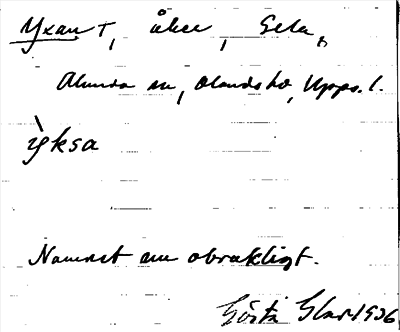 Yxan T, åker, Gela,
Alunda sn, Olands hd, Upps. l.
ỳksa
Namnet nu obrukligt.
Gösta Glas 1936